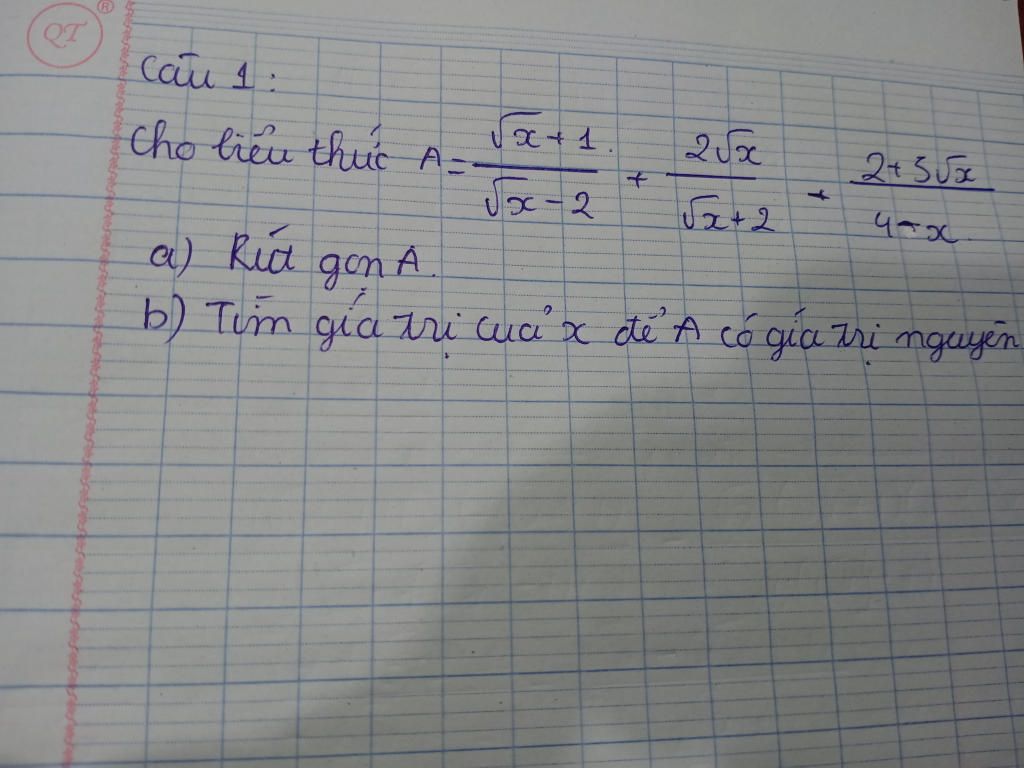 QT ®
Câu 1:
Cho biểu thức A = (√x + 1)/(√x - 2) + (2√x)/(√x + 2) + (2 + 5√x)/(4 - x)
a) Rút gọn A.
b) Tìm giá trị của x để A có giá trị nguyên